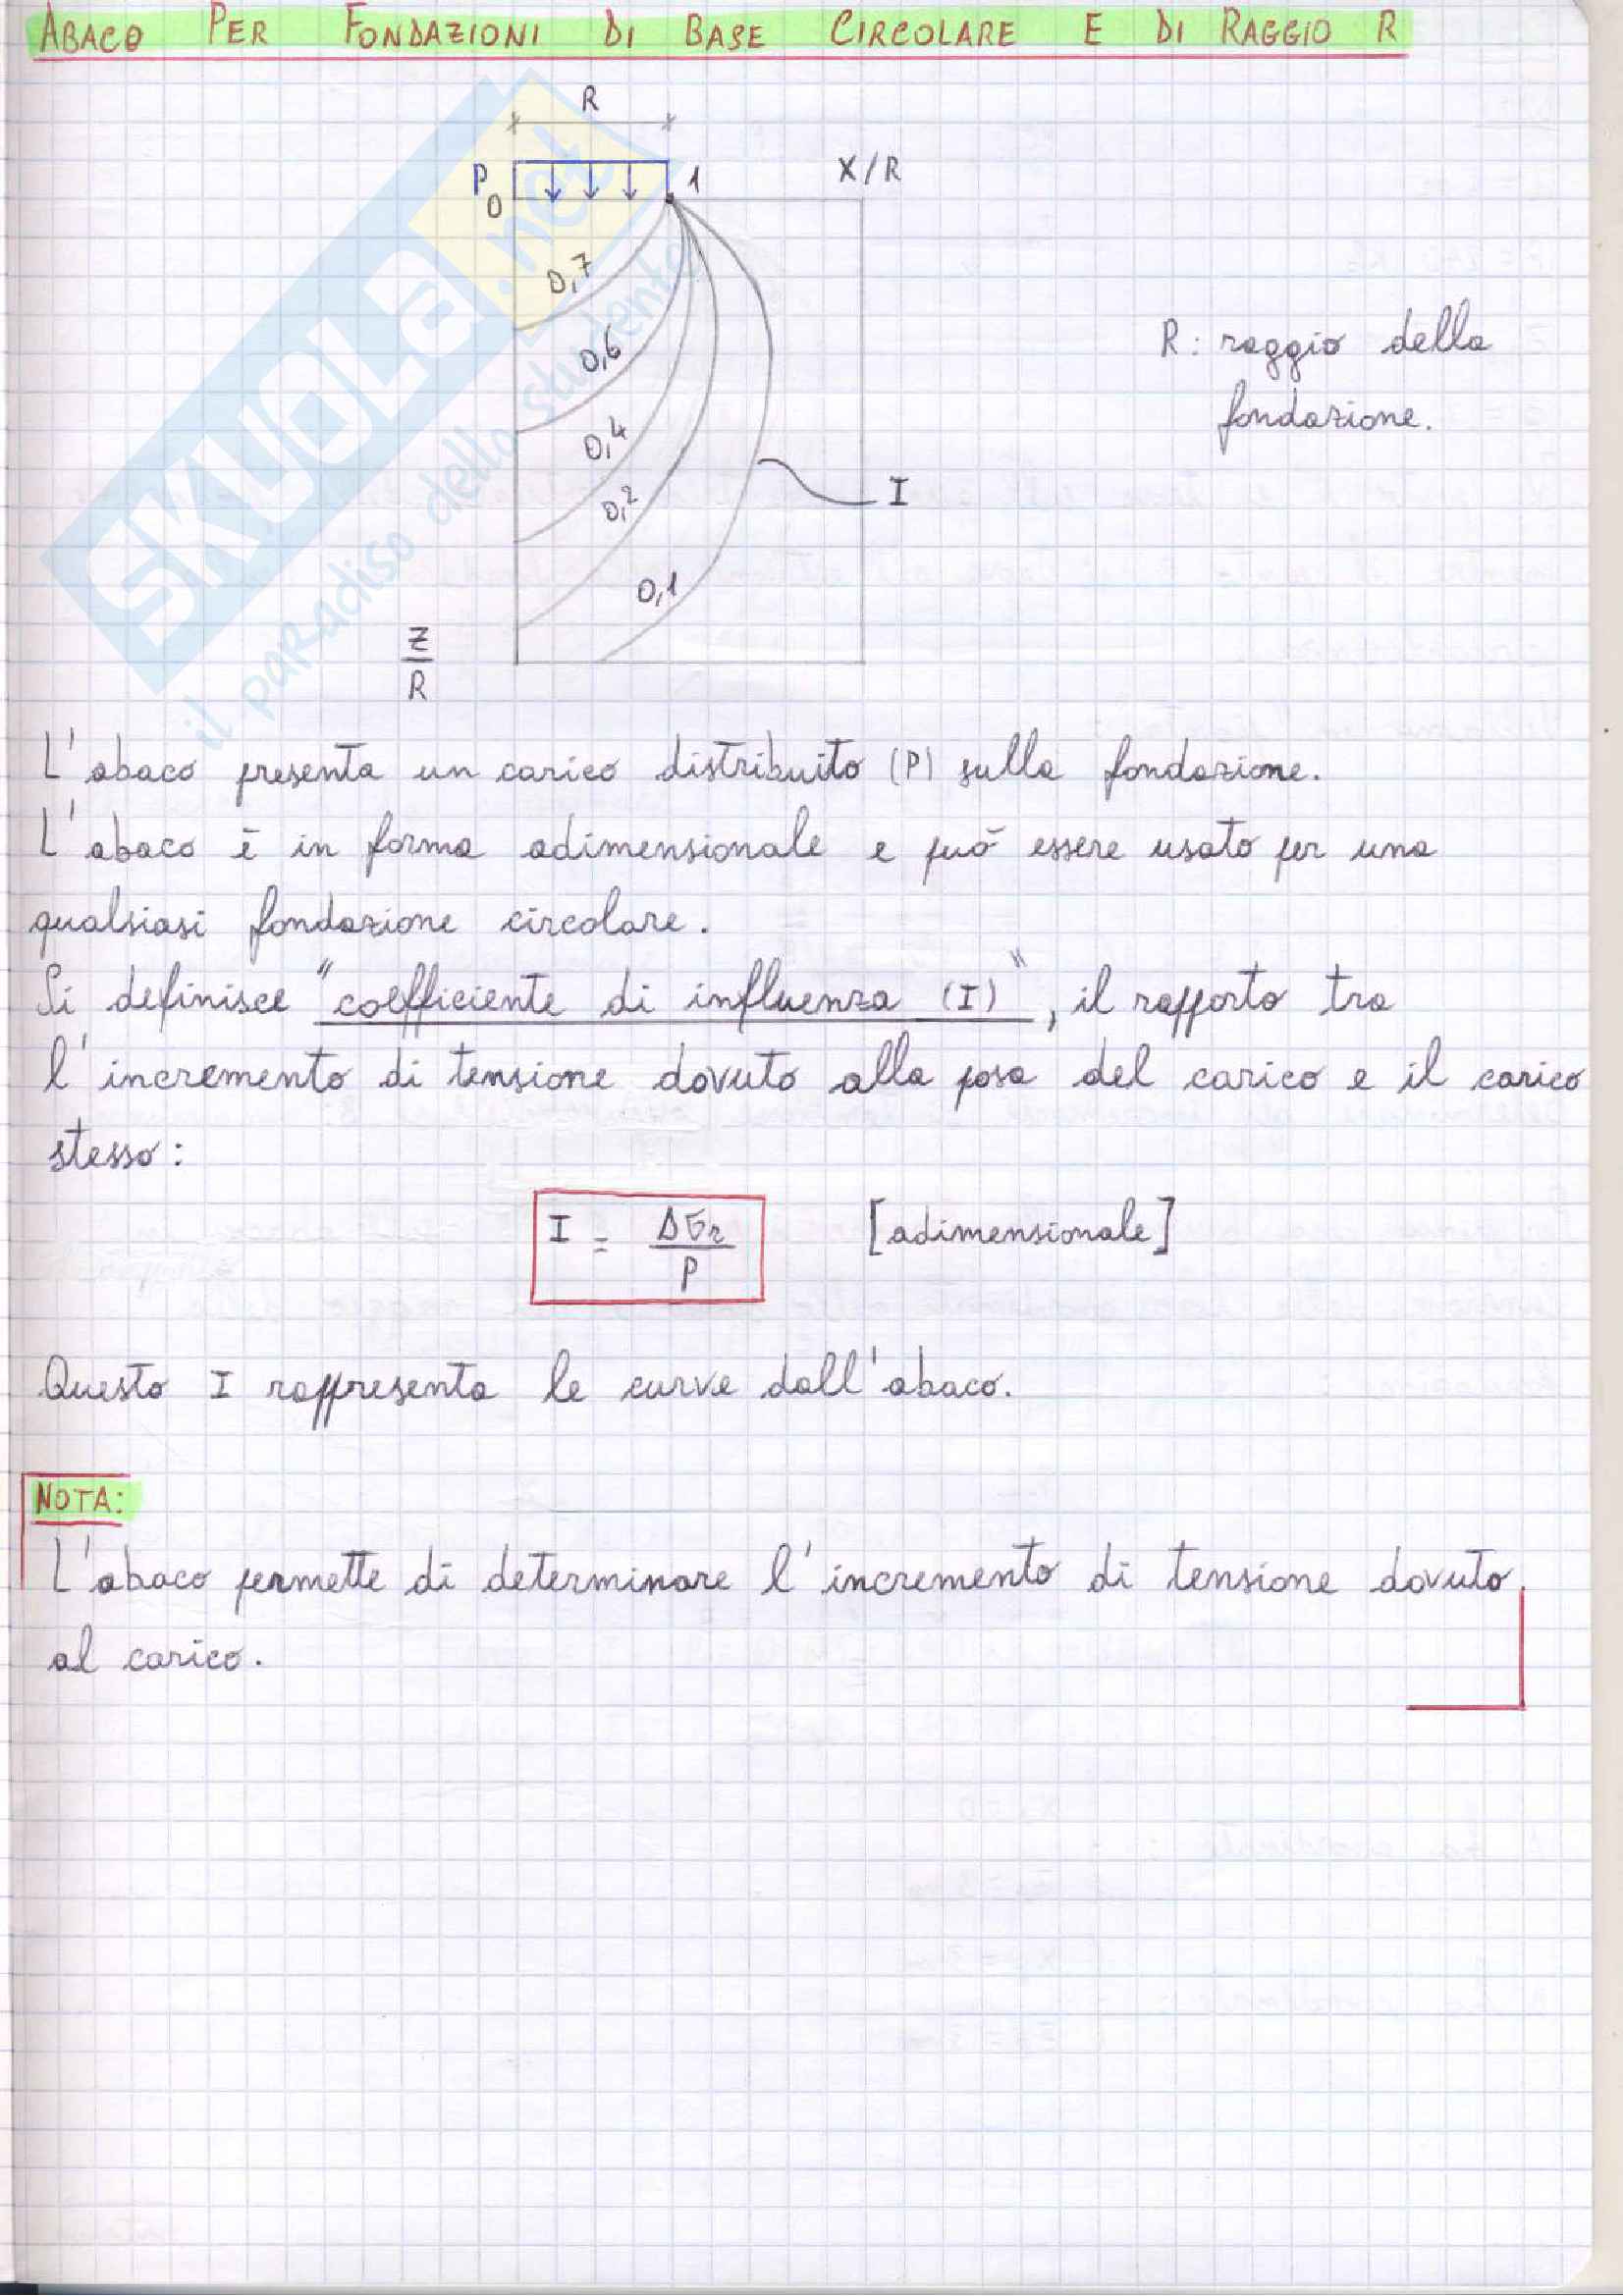 ABACO PER FONDAZIONI DI BASE CIRCOLARE E DI RAGGIO R
R
P
0
1
X/R
0,7
0,6
0,4
0,2
0,1
I
Z
R
R: raggio della
fondazione.
SKUOLA.net
il paradiso dello studente
L'abaco presenta un carico distribuito (P) sulla fondazione.
L'abaco è in forma adimensionale e può essere usato per una
qualsiasi fondazione circolare.
Si definisce "coefficiente di influenza (I)", il rapporto tra
l'incremento di tensione dovuto alla posa del carico e il carico
stesso:
I = Δσz / P [adimensionale]
Questo I rappresenta le curve dall'abaco.
NOTA:
L'abaco permette di determinare l'incremento di tensione dovuto
al carico.